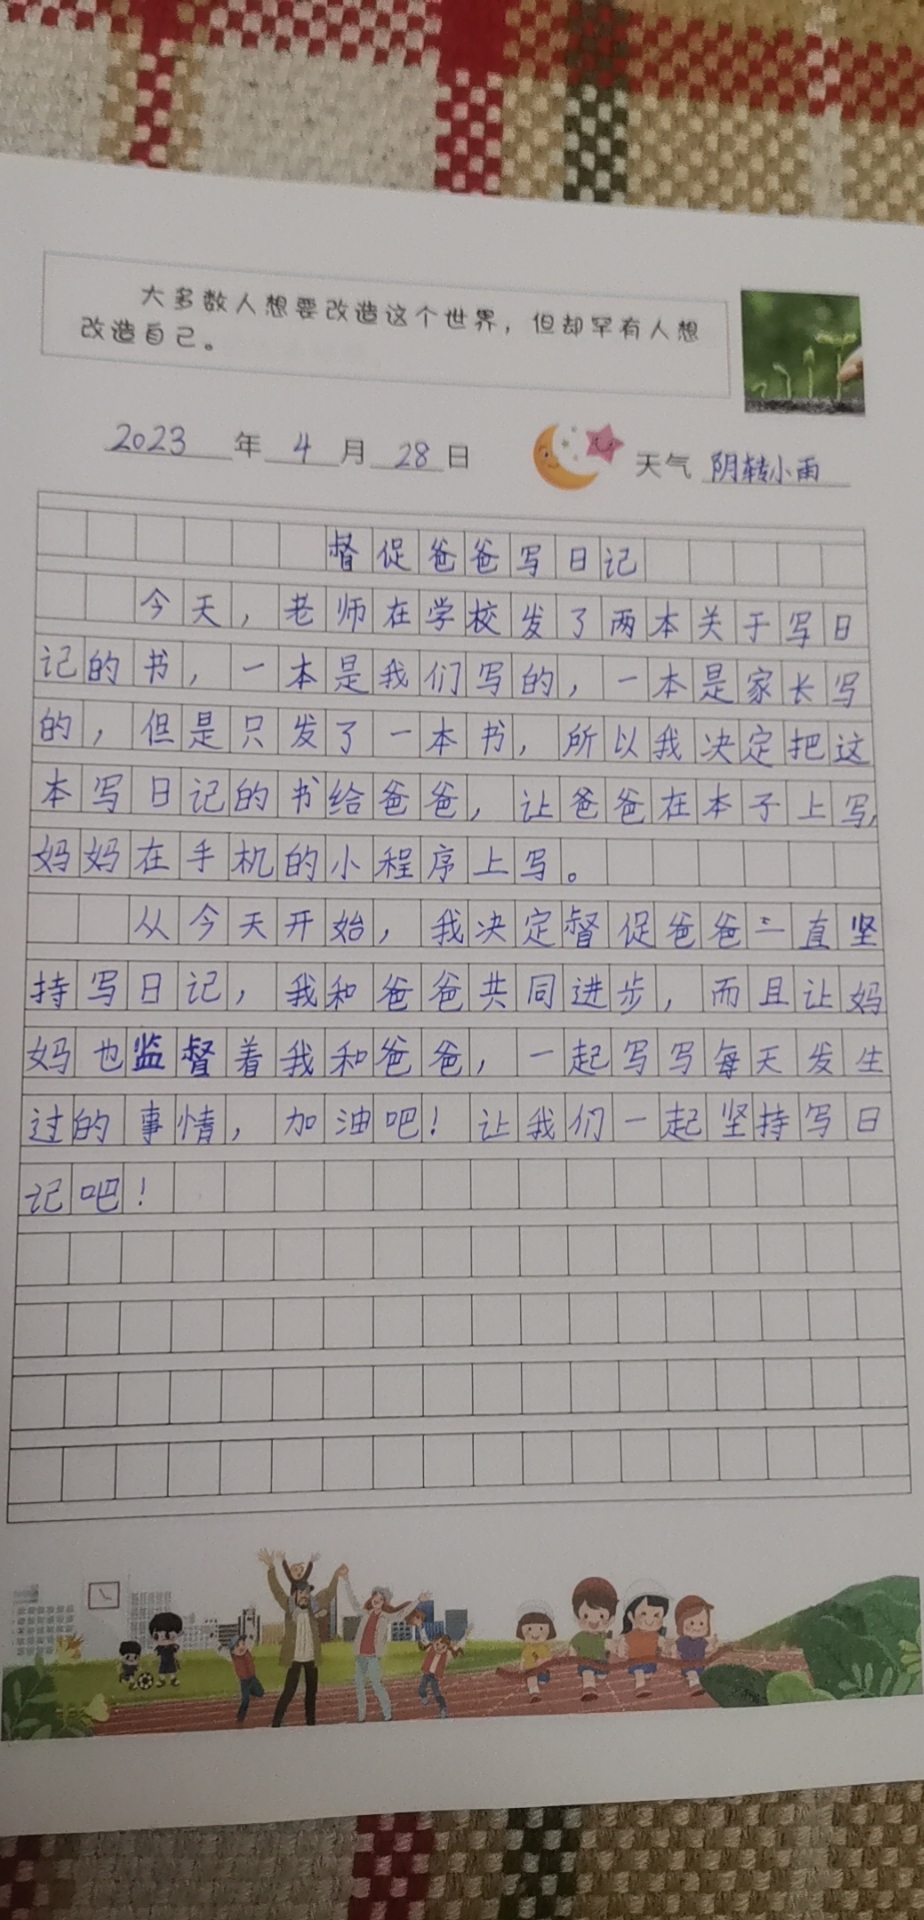 大多数人想要改造这个世界，但却罕有人想
改造自己。
2023年4月28日 天气 阴转小雨
督促爸爸写日记
今天，老师在学校发了两本关于写日
记的书，一本是我们写的，一本是家长写
的，但是只发了一本书，所以我决定把这
本写日记的书给爸爸，让爸爸在本子上写，
妈妈在手机的小程序上写。
从今天开始，我决定督促爸爸一直坚
持写日记，我和爸爸共同进步，而且让妈
妈也监督着我和爸爸，一起写写每天发生
过的事情，加油吧！让我们一起坚持写日
记吧！